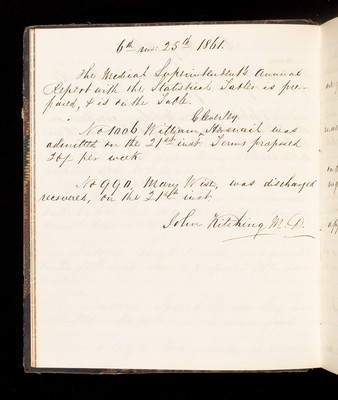 6th mo: 25th 1861.
The Medical Superintendent's Annual
Report with the Statistical Tables is pre-
pared, & is on the Table.
No 1006 William Horsnail was
admitted on the 21st inst. Terms proposed
20/ per week.
No 990, Mary West, was discharged
recovered, on the 21st inst.
John Kitching M.D.